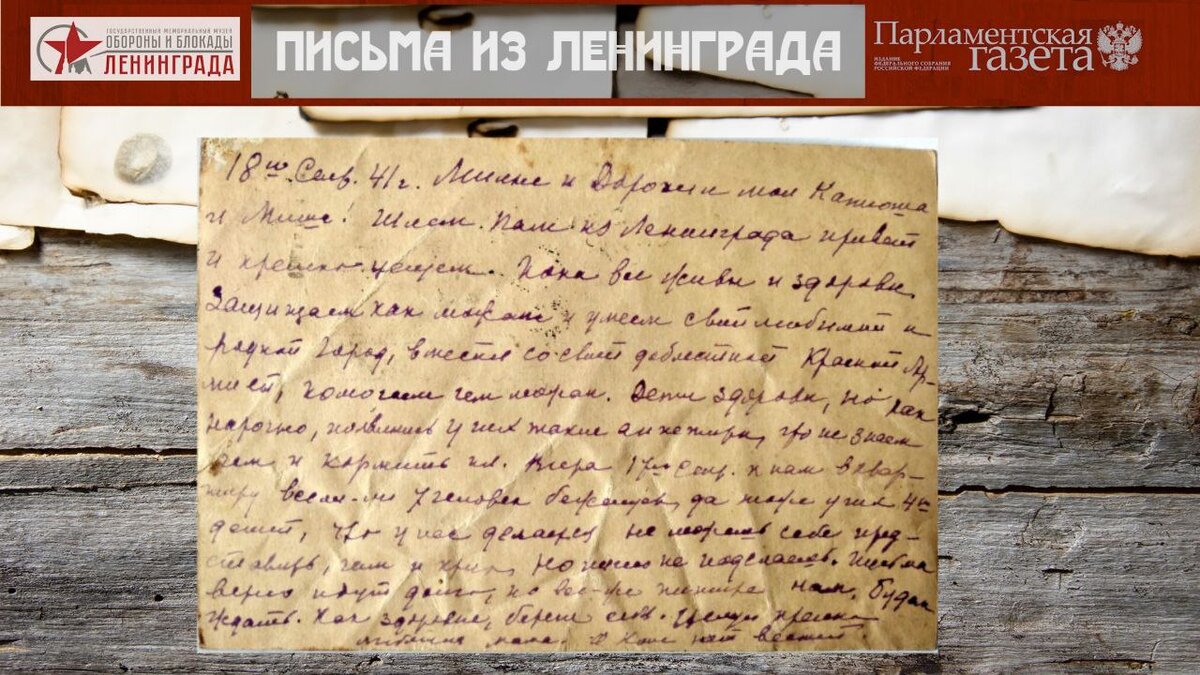 ГОСУДАРСТВЕННЫЙ МЕМОРИАЛЬНЫЙ МУЗЕЙ
ОБОРОНЫ И БЛОКАДЫ
ЛЕНИНГРАДА
ПИСЬМА ИЗ ЛЕНИНГРАДА
Парламентская
газета
ИЗДАНИЕ
ФЕДЕРАЛЬНОГО СОБРАНИЯ
РОССИЙСКОЙ ФЕДЕРАЦИИ
18го Сент. 41г. Милые и Дорогие мои Катюша
и Миша! Шлем Вам из Ленинграда привет
и крепко целуем. Пока все живы и здоровы,
Защищаем как можем и умеем свой любимый и
родной город, вместе со своей доблестной Красной Ар-
мией, помогаем чем можем. Дети здоровы, но как
нарочно, появились у них такие аппетиты, что не знаем
чем и кормить их. Вчера 17го Сент. к нам в квар-
тиру вселили 7 человек беженцев, да тоже у них 4ro
детей, что у нас делается не можешь себе пред-
ставить, гам и крик, но ничего не поделаешь. Письма
верно идут долго, но все-же пишите нам, будем
ждать. Как здоровье, береги себя. Целую крепко
мама. О нет вестей